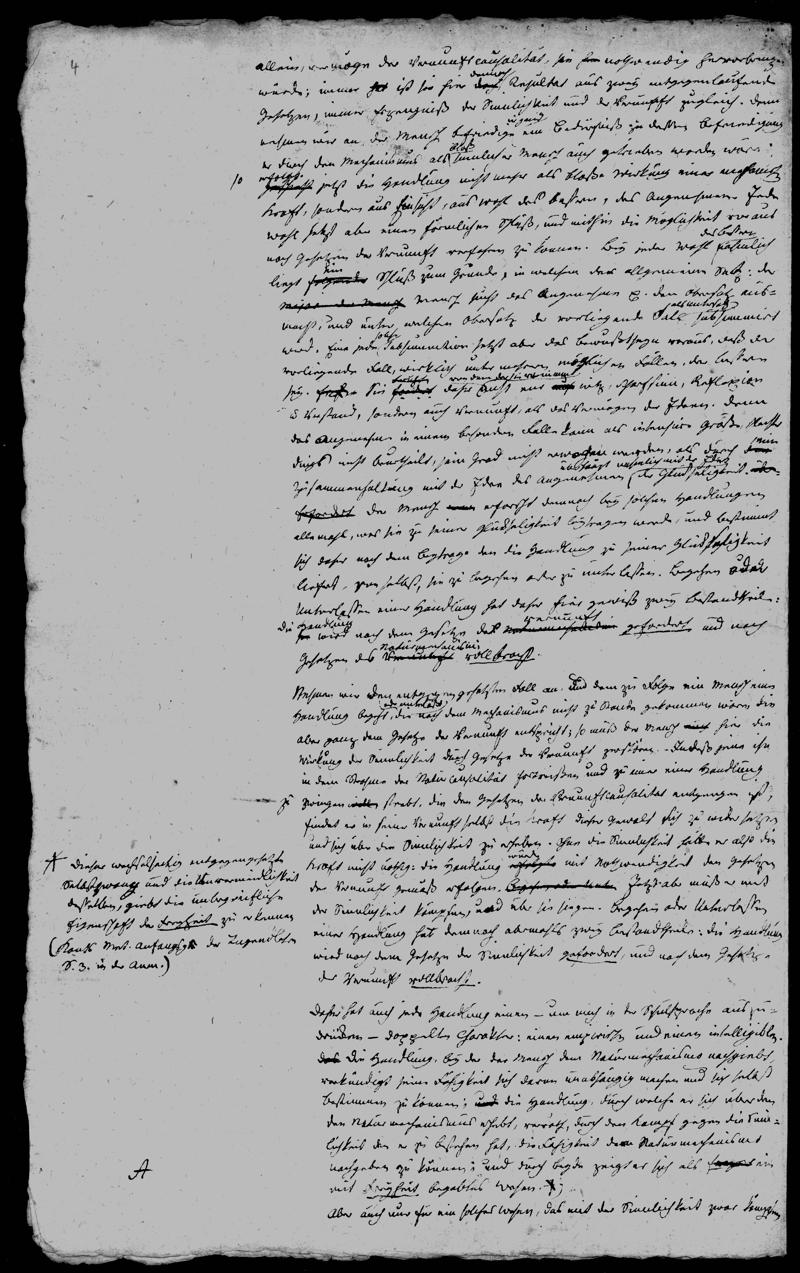 4
allein, vermöge der Vernunftcausalität, sie nothwendig hervorbringen
würde; immer ist sie hier demnach Resultat aus zwey entgegenlaufenden
Gesetzen, immer Erzeugniß der Sinnlichkeit und der Vernunft zugleich. Denn
nehmen wir an, der Mensch befriedige irgend ein Bedürfniß zu dessen Befriedigung
er durch den Mechanismus als blos sinnlicher Mensch auch getrieben worden wäre:
10
erfolgt jetzt die Handlung nicht mehr als bloße Wirkung einer mechanischen
Kraft, sondern aus Einsicht, aus Wahl des bessern, des Angenehmen. Jede
Wahl setzt aber einen förmlichen Schluß, und mithin die Möglichkeit voraus
nach Gesetzen der Vernunft verfahren zu können. Bey jeder Wahl des bessern nämlich
liegt ein Schluß zum Grunde, in welchem der allgemeine Satz: der
Mensch sucht das Angenehme den Obersatz aus-
macht, und unter welchen Obersatz der vorliegende Fall als Untersatz subsummirt
wird. Eine jede solche Subsummtion setzt aber das Bewußtseyn voraus, daß der
vorliegende Fall, wirklich unter mehrern möglichen Fällen, der bessere
sey. Sie daher nicht nur Witz, Scharfsinn, Reflexion
u Verstand, sondern auch Vernunft, als das Vermögen der Ideen. Denn
das Angenehme in einem besondern Falle kann als intensive Größe, schlechter
dings nicht beurtheilt, sein Grad nicht erwogen werden, als durch
Zusammenhaltung mit der Idee des Angenehmen (der Glückseligkeit
der Mensch erforscht demnach bey solchen Handlungen
allemahl, was sie zu seiner Glückseligkeit beytragen werde, und bestimmt
sich daher nach dem Beytrage den die Handlung zu seiner Glückseligkeit
liefert, von selbst, sie zu begehen oder zu unterlassen. Begehen oder
Unterlassen einer Handlung hat daher hier gewiß zwey Bestandtheile:
die Handlung wird nach dem Gesetze der Vernunft gefordert und nach
Gesetzen des Naturmechanismus vollbracht.
Nehmen wir den entgegengesetzten Fall an, und dem zu Folge ein Mensch eine
Handlung begeht oder unterläßt, die nach dem Mechanismus nicht zu Stande gekommen wäre, die
aber ganz dem Gesetze der Vernunft entspricht; so muß der Mensch hier die
Wirkung der Sinnlichkeit durch Gesetze der Vernunft zerstören. Indeß jene ihn
in dem Strohme der Naturcausalität fortreißen und zu einer Handlung
zu zwingen strebt, die den Gesetzen der Vernunftcausalität entgegen ist,
findet er in seiner Vernunft selbst die Kraft dieser Gewalt sich zu widersetzen
und sich über die Sinnlichkeit zu erheben. Ohne die Sinnlichkeit hätte er also die
Kraft nicht nöthig: die Handlung würde mit Nothwendigkeit den Gesetzen
der Vernunft gemäß erfolgen. Jetzt aber muß er mit
der Sinnlichkeit kämpfen, und über sie siegen. Begehen oder Unterlassen
einer Handlung hat demnach abermahls zwey Bestandtheile: die Handlung
wird nach dem Gesetze der Sinnlichkeit gefordert, und nach dem Gesetze
der Vernunft vollbracht.
Dieser wechselseitig entgegengesetzte
Selbstzwang und die Unvermeidlichkeit
desselben, giebt die unbegreifliche
Eigenschaft der Freyheit zu erkennen
(Kants Met. Anfangsgr. der Tugendlehre
S. 3. in der Anm.)
Daher hat auch jede Handlung einen – um mich in der Schulsprache auszu-
drücken – doppelten Charakter: einen empirischen und einen intelligiblen.
Die Handlung, bey der der Mensch dem Naturmechanismus nachgiebt,
verkündigt seine Fähigkeit sich davon unabhängig machen und sich selbst
bestimmen zu können; die Handlung, durch welche er sich über den
Naturmechanismus erhebt, verräth, durch den Kampf gegen die Sinn-
lichkeit den er zu bestehen hat, die Fähigkeit dem Naturmechanismus
nachgeben zu können; und durch beyde zeigt er sich als ein
mit Freyheit begabtes Wesen.
Aber auch nur für ein solches Wesen, das mit der Sinnlichkeit zwar kämpfen
A